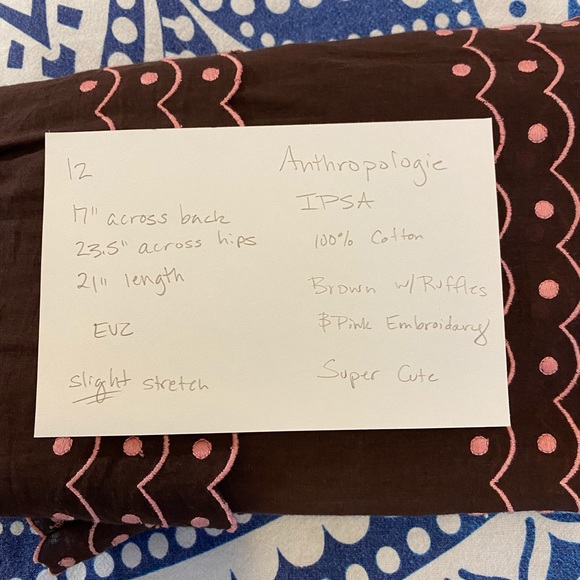 12
17" across back
23.5" across hips
21" length
EUC
slight stretch
Anthropologie
IPSA
100% Cotton
Brown w/Ruffles
& Pink Embroidary
Super Cute